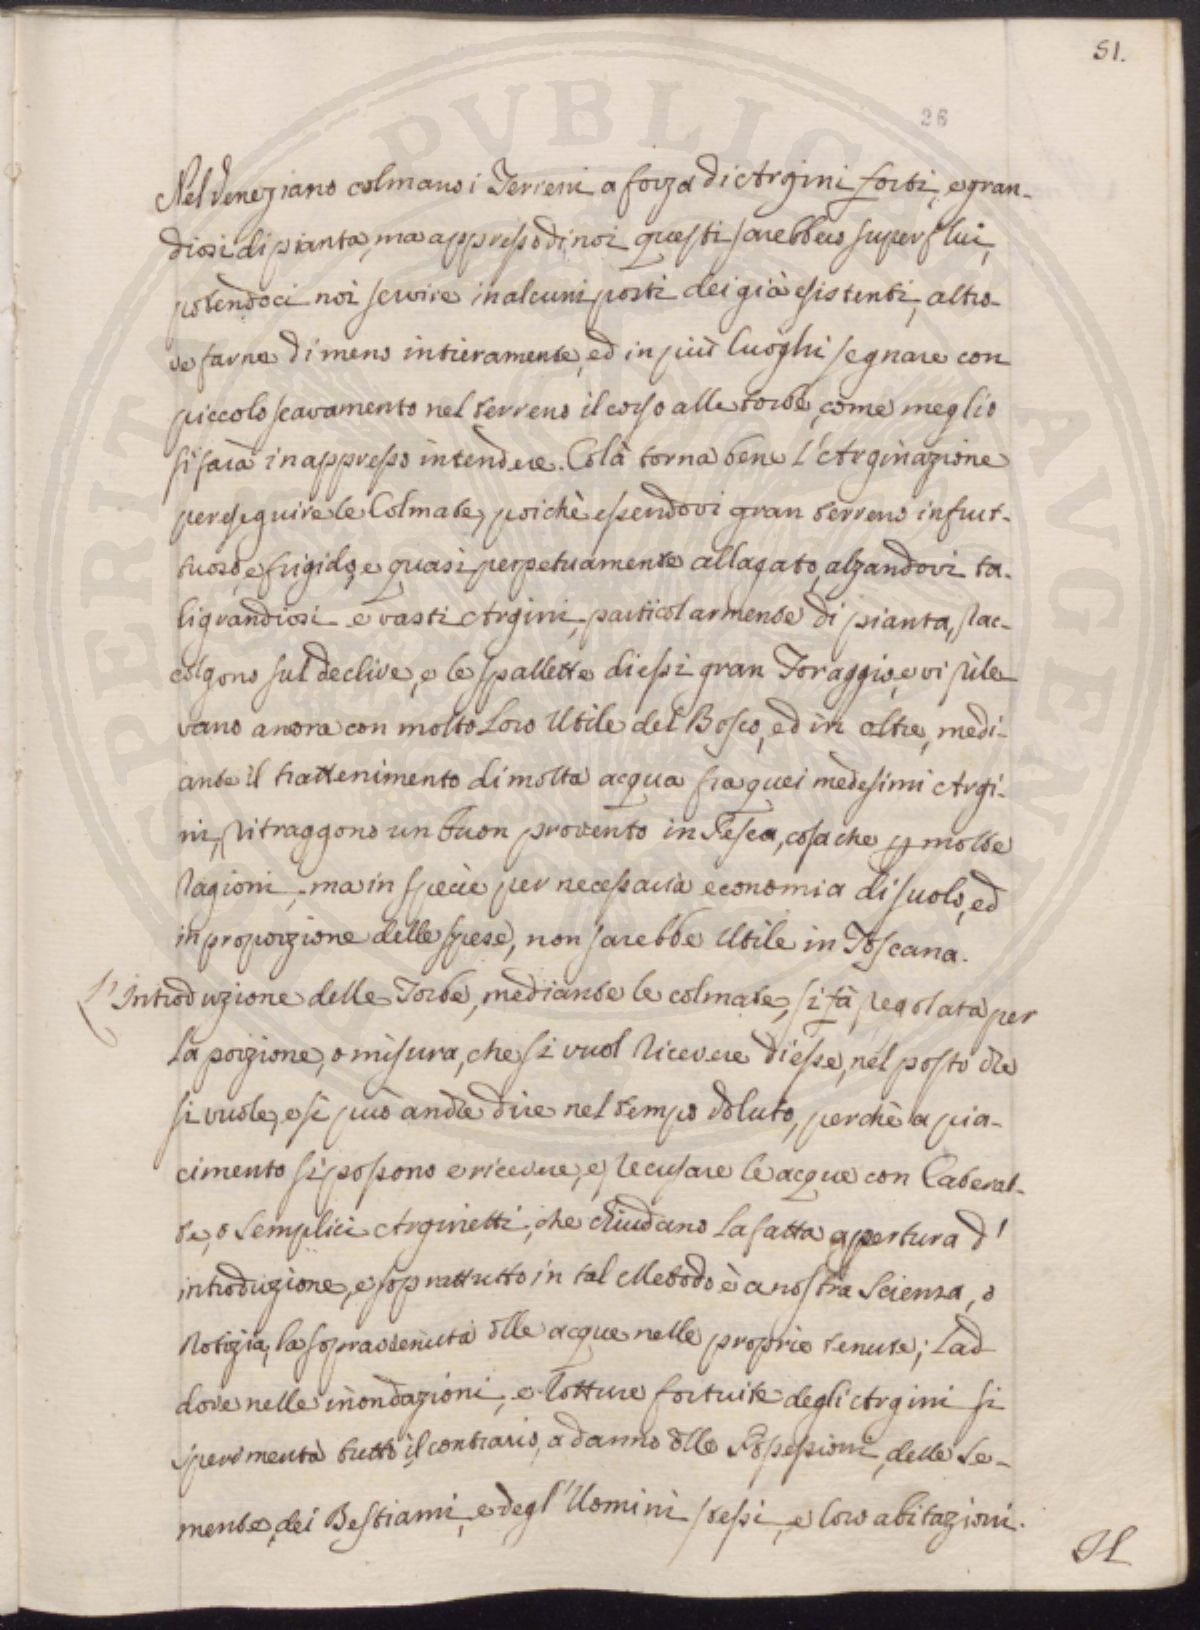 51.
26
Nel Veneziano colmano i Terreni a forza di Argini forti, e gran-
diosi di pianta, ma appresso di noi questi sarebbero superflui,
potendoci noi servire in alcuni posti dei già esistenti, altro-
ve farne di meno intieramente, ed in più luoghi segnare con
piccolo scavamento nel terreno il corso alle torbe, come meglio
si farà in appresso intendere. Colà torna bene l'Arginazione
per eseguire le Colmate, poichè essendovi gran terreno infrut-
tuoso, e frigido, e quasi perpetuamente allagato, alzandovi ta-
li grandiosi e vasti Argini, particolarmente di pianta, Rac-
colgono sul declive, e le spallette di essi gran Foraggio, e vi rile
vano ancora con molto Loro Utile del Bosco, ed in oltre, medi-
ante il trattenimento di molta acqua fra quei medesimi Argi-
ni, Ritraggono un buon provento in Pesca, cosa che p molte
Ragioni, ma in specie per necessaria economia di suolo, ed
in proporzione delle spese, non sarebbe Utile in Toscana.
L'Introduzione delle Torbe, mediante le colmate, si fà Regolata per
La porzione, o misura, che si vuol Ricevere di esse, nel posto che
si vuole, e si può anche dire nel tempo voluto, perchè a pia-
cimento si possono e ricevere, e Recusare le acque con Caterat-
te, o Semplici Arginetti, che chiudano La fatta apertura d'
introduzione, e soprattutto in tal Metodo è a nostra Scienza, o
Notizia, la sopravvenuta dlle acque nelle proprie tenute; Lad
dove nelle inondazioni, e Rotture fortuite degli Argini si
sperimenta tutto il contrario, a danno dlle Possessioni, delle Se-
mente, dei Bestiami, e degl'Uomini stessi, e loro abitazioni.
Il
PUBLICA
PERITA
AUGEN